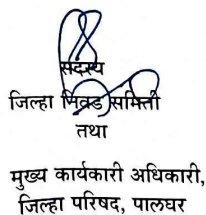 सदस्य
जिल्हा निवड समिती
तथा
मुख्य कार्यकारी अधिकारी,
जिल्हा परिषद, पालघर